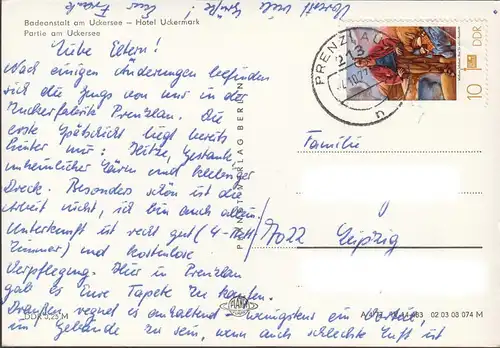 Badeanstalt am Uckersee – Hotel Uckermark
Partie am Uckersee
Vorerst viele
Grüße
! Euer
Frank
Liebe Eltern!
Nach einigen Änderungen befinden
sich die Jungs von uns in der
Zuckerfabrik Prenzlau. Die
erste Spätschicht liegt bereits
hinter mir: Hitze, Gestank,
unheimlicher Lärm und klebriger
Dreck. Besonders schön ist die
Arbeit nicht, ich bin auch allein.
Unterkunft ist recht gut (4-Bett
Zimmer) und kostenlose
Verpflegung. Hier in Prenzlau
gab es Eure Tapete zu kaufen.
Draußen regnet es anhaltend – wenigstens ein
im Gebäude zu sein, wenn auch schlechte Luft ist
VERLAG BERLIN
PRENZLAU
213
n
DDR
10
Familie
7022 Leipzig
DDR 0,25 M
02 03 03 074 M